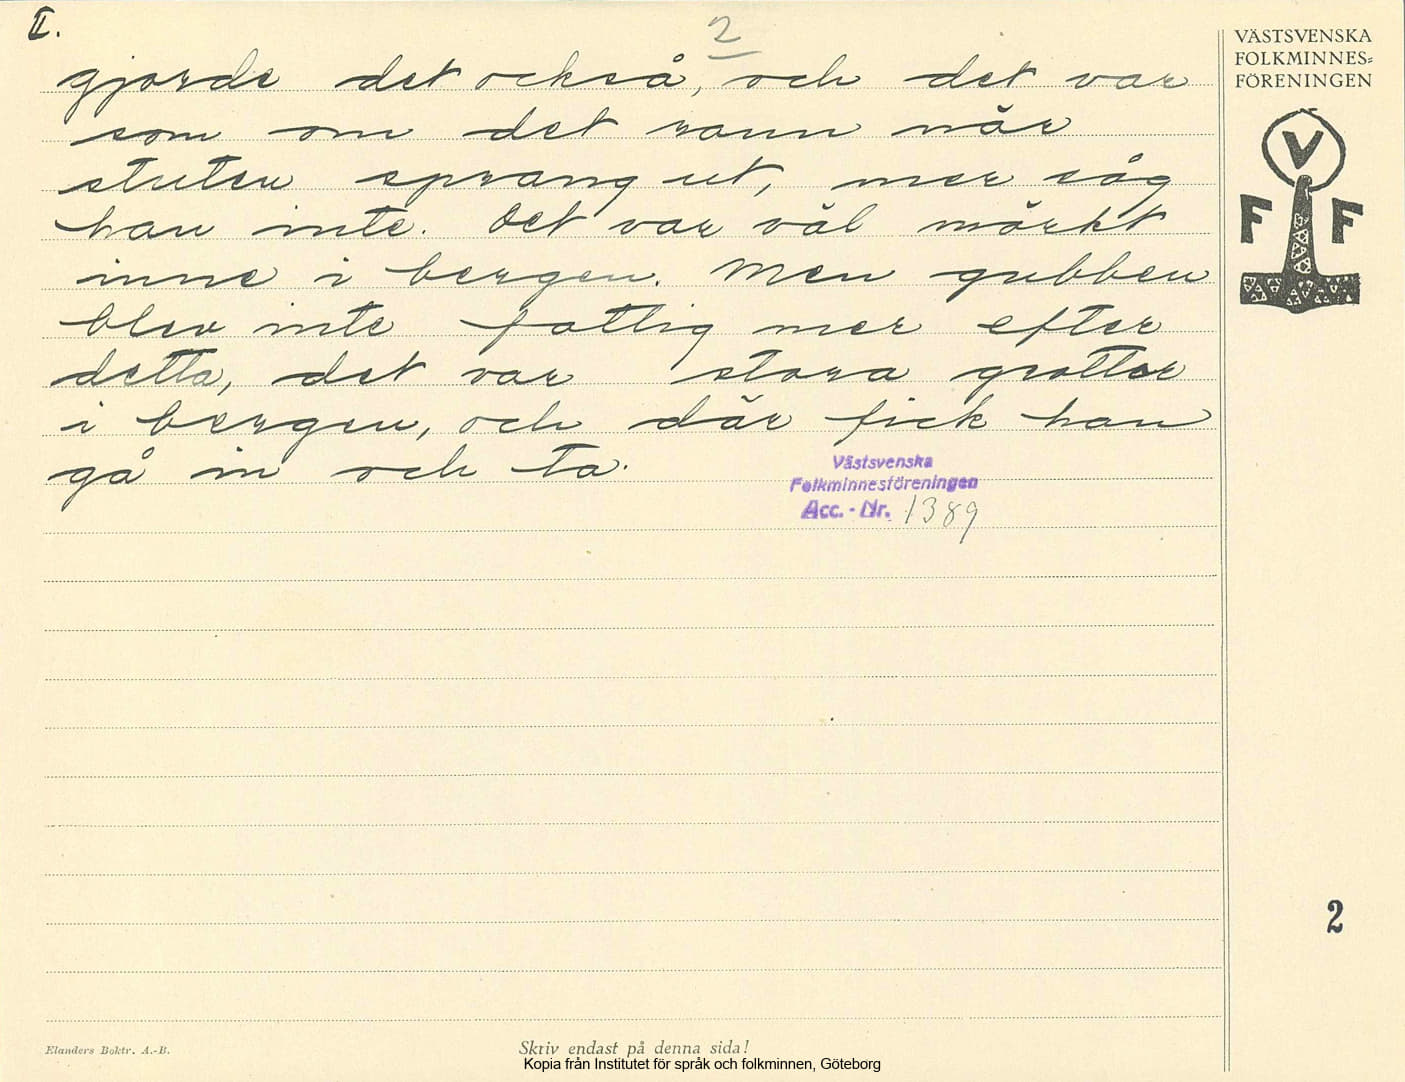 II.
2
gjorde det också, och det var
som om det rann när
stuten sprang ut, mer såg
han inte. Det var väl mörkt
inne i bergen. Men gubben
blev inte fattig mer efter
detta, det var stora grottor
i bergen, och där fick han
gå in och ta.
Västsvenska
Folkminnesföreningen
Acc. - Nr. 1389
VÄSTSVENSKA
FOLKMINNES=
FÖRENINGEN
V
F F
2
Elanders Boktr. A.-B.
Skriv endast på denna sida!
Kopia från Institutet för språk och folkminnen, Göteborg